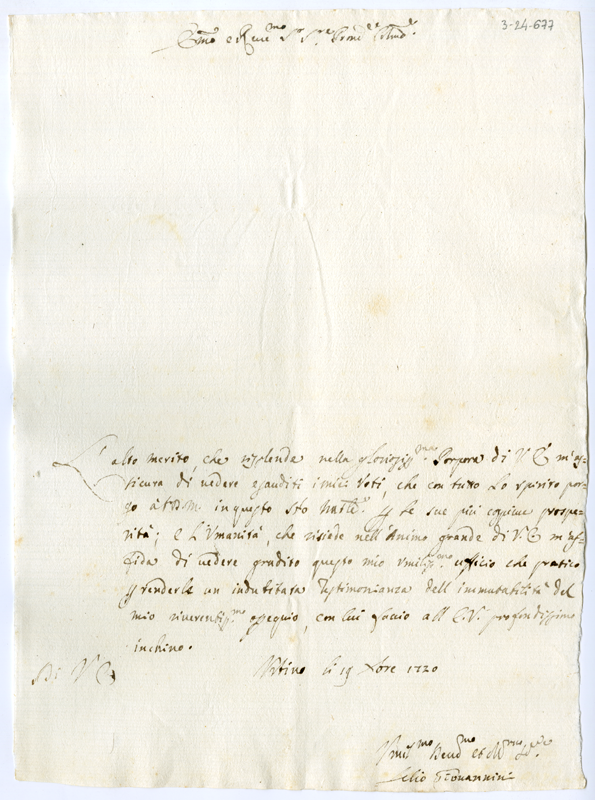 3-24-677
Em̃o e Reue.mo S.r S.re Prõne
L'alto merito, che risplende nella gloriosiss.ma Porpora di V. E. m'as=
sicura di uedere esauditi i miei Voti, che con tutto lo spirito por=
go à S.D.M. in questo Sto Natle. p le sue più copiose prospe=
rità; e L'Vmanità, che risiede nell'Animo grande di V. E. m'af=
fida di uedere gradito questo mio vmiliss.mo ufficio che pratico
p renderle un indubitata Testimonianza dell'immutabilità del
mio riuerentiss.mo ossequio, con cui faccio all'E.V. profondissimo
inchino.
Di V. E.
Vrbino li 19 Xbre 1720
Vmil.mo Deuot.mo et Obl.mo
Lelio Giouannini